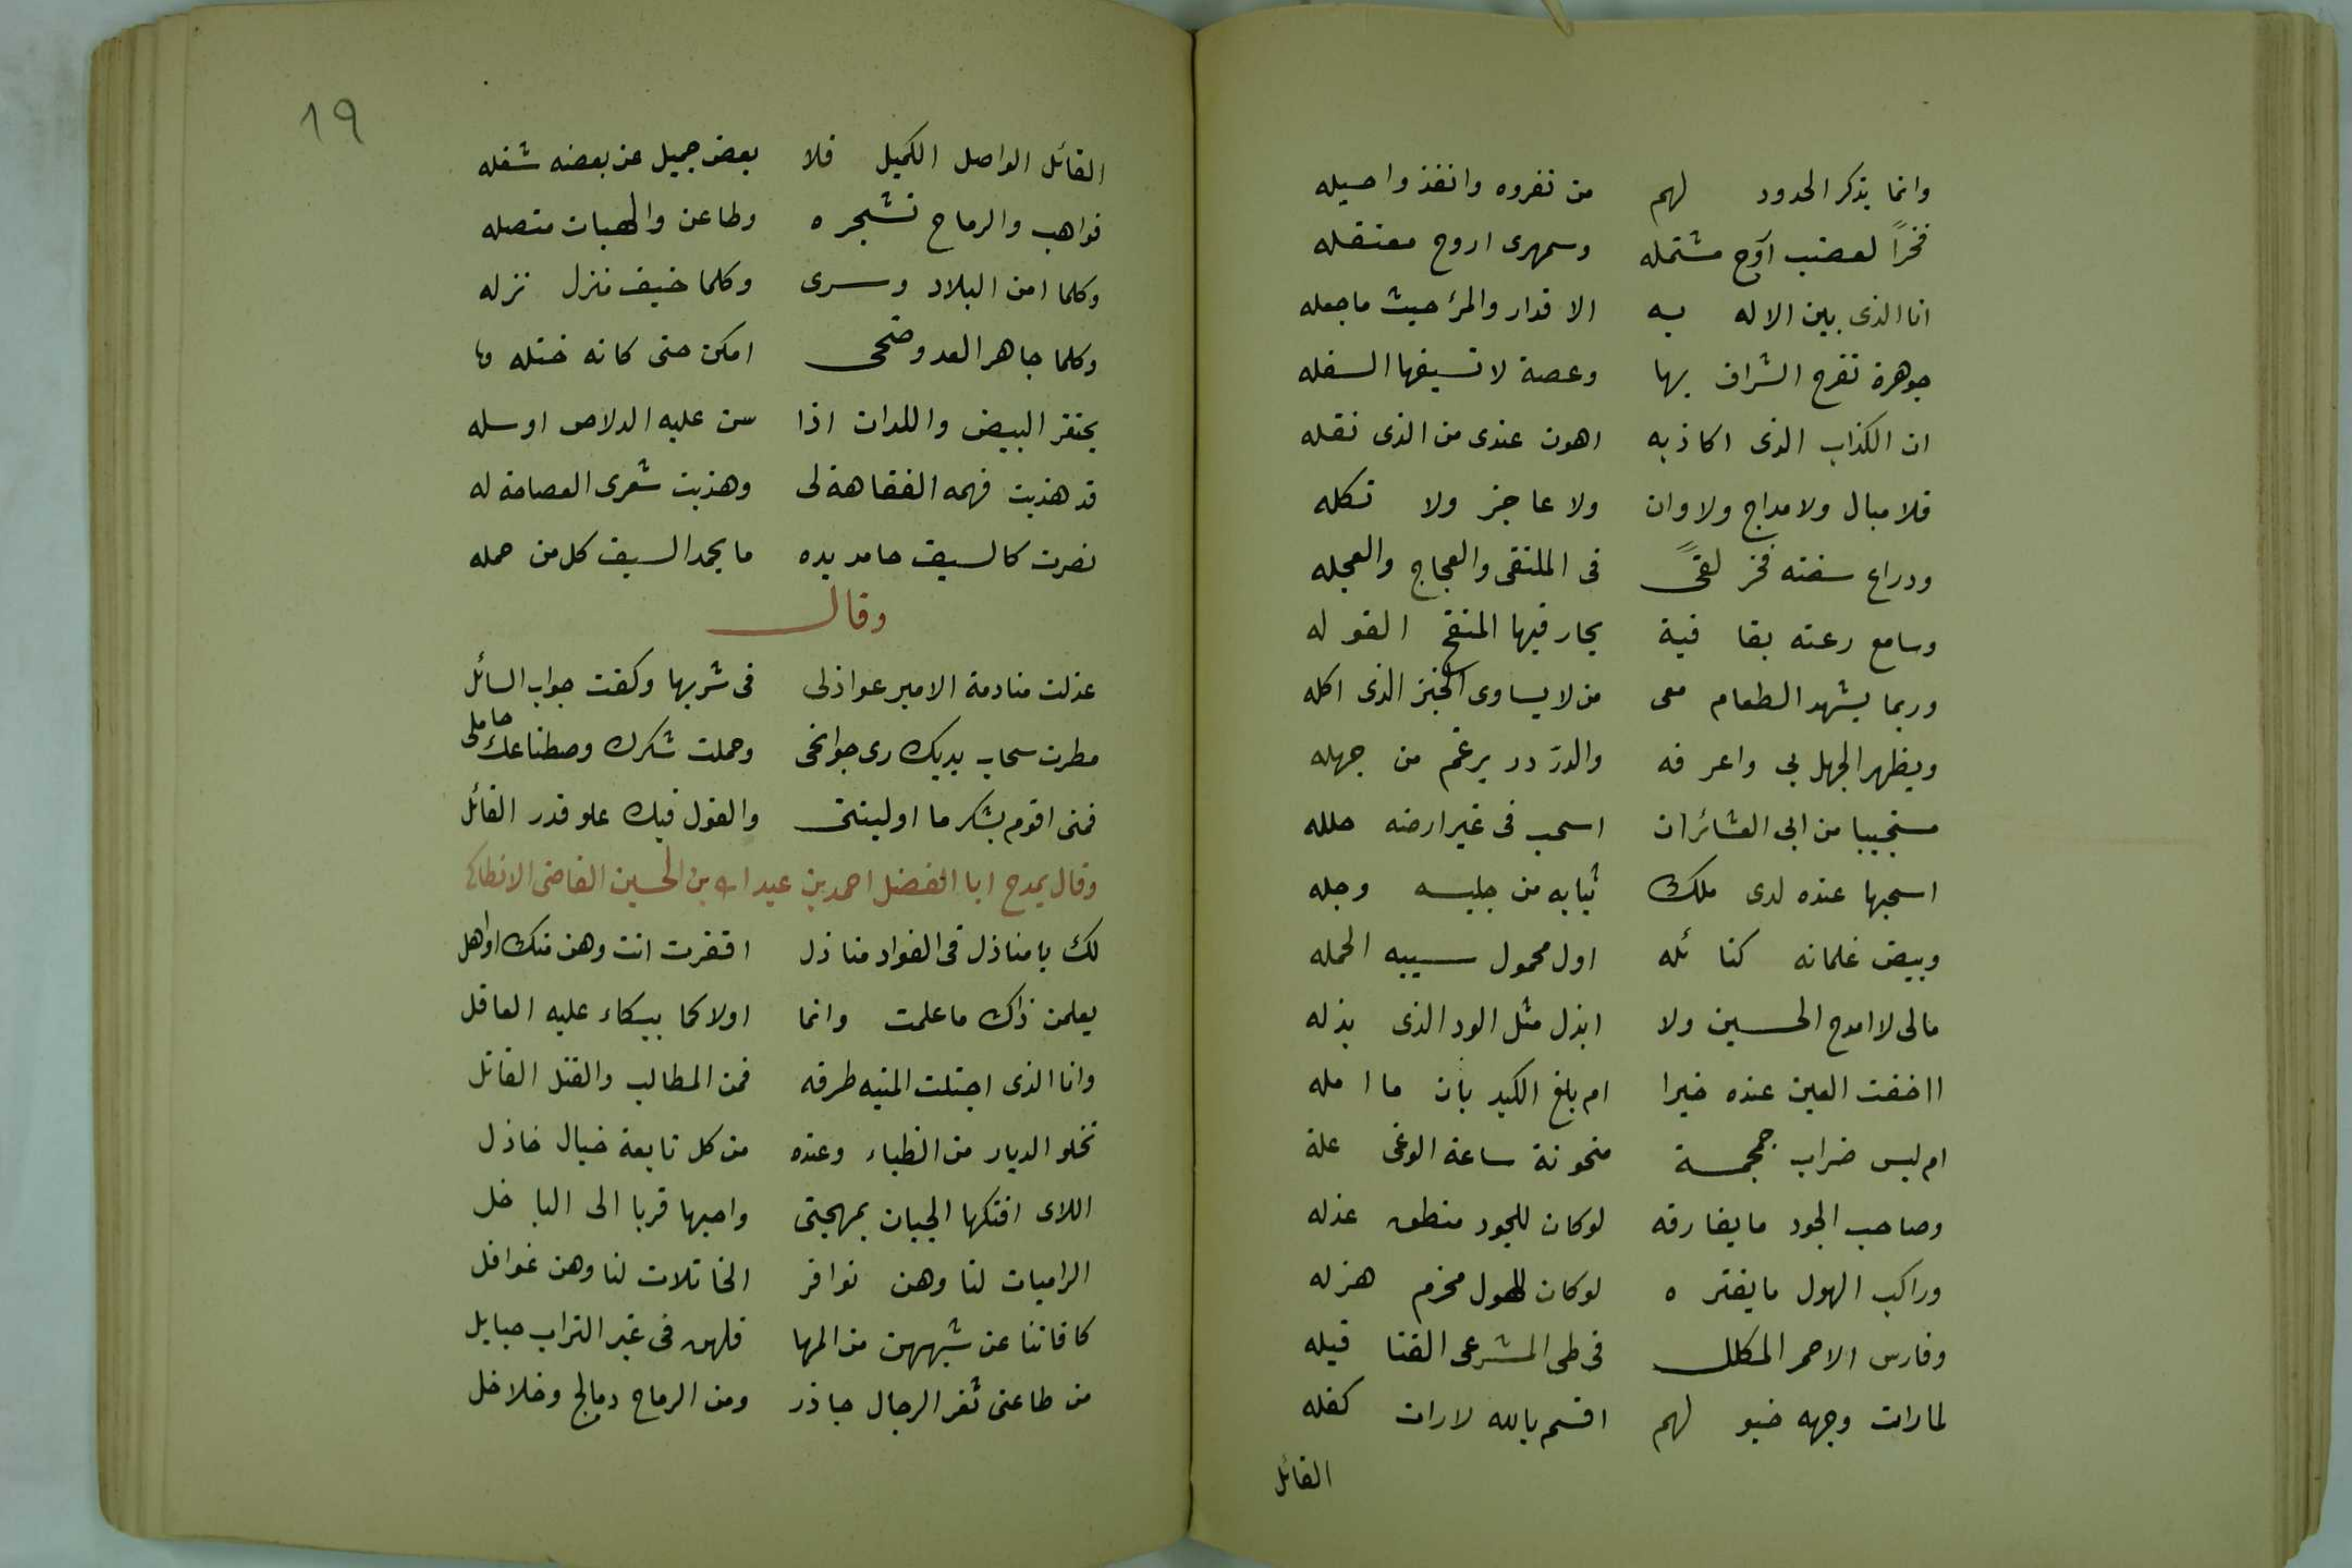 وانما يذكر الحدود لهم من نفروه وانفذوا حيله
فخرًا لعضب آوح مشتمله وسمهرى اروح معتقله
انا الذى بين الاله به الاقدار والمرٔ حيث ماجعله
جوهرة تفرح الشراف بها وعصة لا تسيغها السفله
ان الكذاب الذى اكاذبه اهون عندى من الذى نقله
فلا مبال ولا مداج ولا وان ولا عاجز ولا تكله
ودراع سفته فخر لقىً فى الملتقى والعجاج والعجله
وسامع رعته بقا فية يحار فيها المنقح القوله
وربما يشهد الطعام معى من لا يساوى الخبز الذى اكله
ويظهر الجهل بى واعرفه والدرّ در يرغم من جهله
مستحييا من ابى العشائران اسحب فى غير ارضه حلله
اسحبها عنده لدى ملك ثيابه من جليسه وجله
وبيض غلمانه كنا ئله اول محمول سيبه الحمله
مالى لا امدح الحسين ولا ابذل مثل الود الذى بذله
ااخفت العين عنده خيرا ام بلغ الكيد بان ما امله
ام ليس ضراب جمجمة منحونة ساعة الوغى علة
وصاحب الجود ما يفارقه لوكان للجود منطق عذله
وراكب الهول ما يفتره لوكان للهول محزم هزله
وفارس الاحمر المكلل فى طى المشرعى القنا قيله
لمارات وجهه خيو لهم اقسم بالله لارات كفله
القائل
١٩
القائل الواصل الكميل فلا بعض جميل عن بعضه شغله
فواهب والرماح تشجره وطاعن والهبات متصله
وكلما امن البلاد وسرى وكلما خيف منزل نزله
وكلما جاهر العدو ضحى امكن حتى كانه ختله
يحتقر البيض واللدان اذا سن عليه الدلاص اوسله
قد هذبت فهمه الفقاهة لى وهذبت شعرى الفصاحة له
نصرت كالسيف حامد يده ما يحمد السيف كل من حمله
وقال
عذلت منادمة الامير عواذلى فى شربها وكفت جواب السائل
مطرت سحاب يديك رى جوانحى وحملت شكرك وصطناعك حاملى
فمتى اقوم بشكر ما اوليتنى والقول فيك علو قدر القائل
وقال يمدح ابا الفضل احمد بن عبد الله بن الحسين القاضى الانطاكى
لك يا منازل فى الفواد منازل اقفرت انت وهن منك اواهل
يعلمن ذاك ما علمت وانما اولاكما يبكاء عليه العاقل
وانا الذى اجتلت المنيه طرفه فمن المطالب والقتل القاتل
تخلو الديار من الظباء وعنده من كل تابعة خيال خاذل
اللاى افتكها الجبان بمهجتى واحبها قربا الى الباخل
الراميات لنا وهن نوافر الخاتلات لنا وهن غوافل
كافاننا عن شبههن من المها فلهن فى غير التراب حبايل
من طاعنى ثغر الرجال جاذر ومن الرماح دمالج وخلاخل